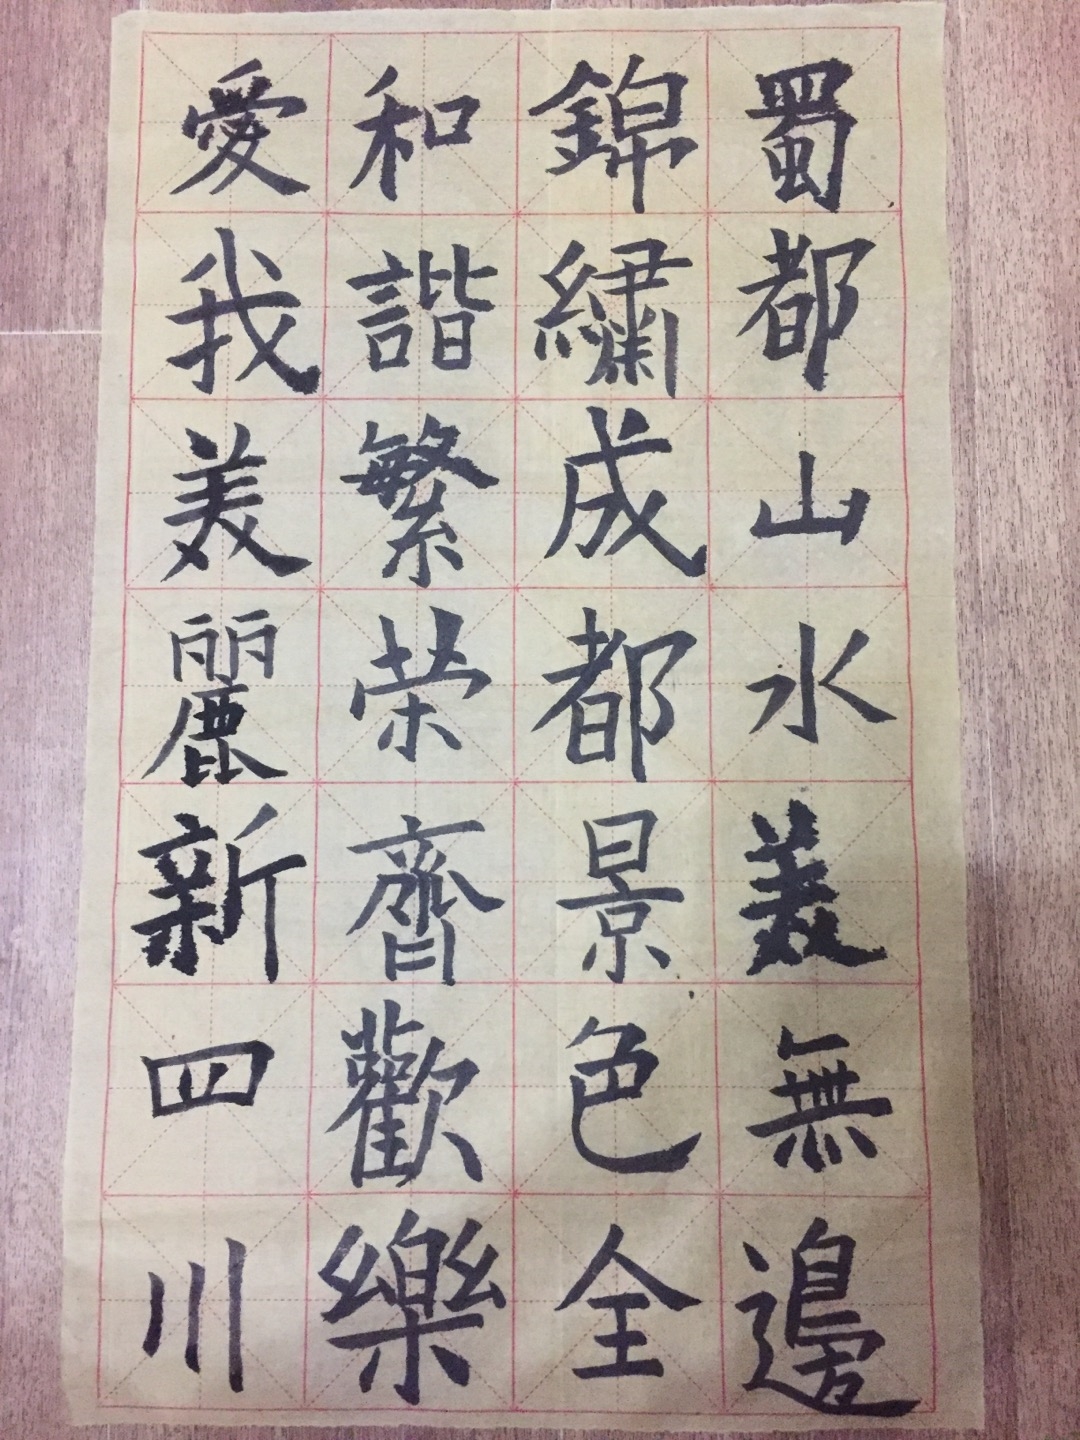 蜀都山水美無邊
錦繡成都景色全
和諧繁荣齊歡樂
愛我美麗新四川